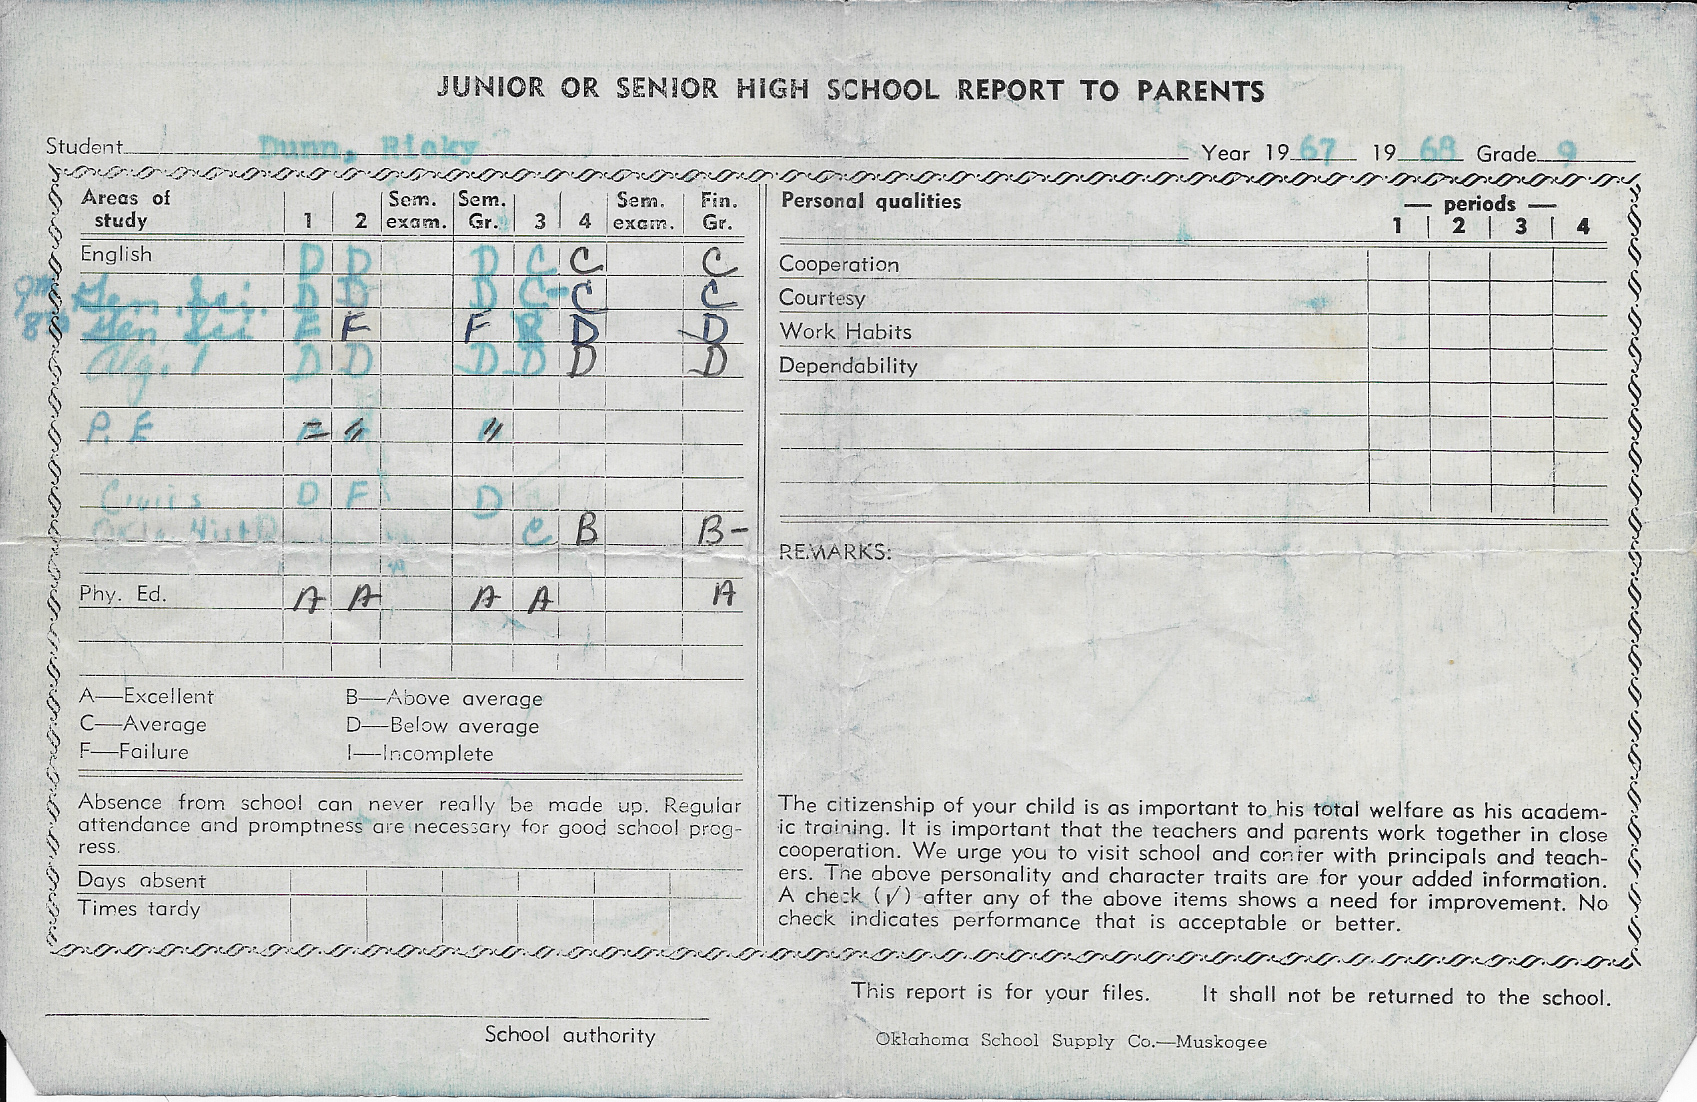 JUNIOR OR SENIOR HIGH SCHOOL REPORT TO PARENTS
Student Dunn, Ricky Year 1967 1968 Grade 9
Areas of study 1 2 Sem. exam. Sem. Gr. 3 4 Sem. exam. Fin. Gr.
English D D D C C C
9th Gen. Sci. D D D C- C C
8th Gen Sci F F F D D
Alg. 1 D D D D D D
P. E
Civics D F D
Okla Hist C B B-
Phy. Ed. A A A A A
A—Excellent B—Above average
C—Average D—Below average
F—Failure I—Incomplete
Absence from school can never really be made up. Regular
attendance and promptness are necessary for good school prog-
ress.
Days absent
Times tardy
School authority
Personal qualities — periods —
1 2 3 4
Cooperation
Courtesy
Work Habits
Dependability
REMARKS:
The citizenship of your child is as important to his total welfare as his academ-
ic training. It is important that the teachers and parents work together in close
cooperation. We urge you to visit school and confer with principals and teach-
ers. The above personality and character traits are for your added information.
A check (√) after any of the above items shows a need for improvement. No
check indicates performance that is acceptable or better.
This report is for your files. It shall not be returned to the school.
Oklahoma School Supply Co.—Muskogee